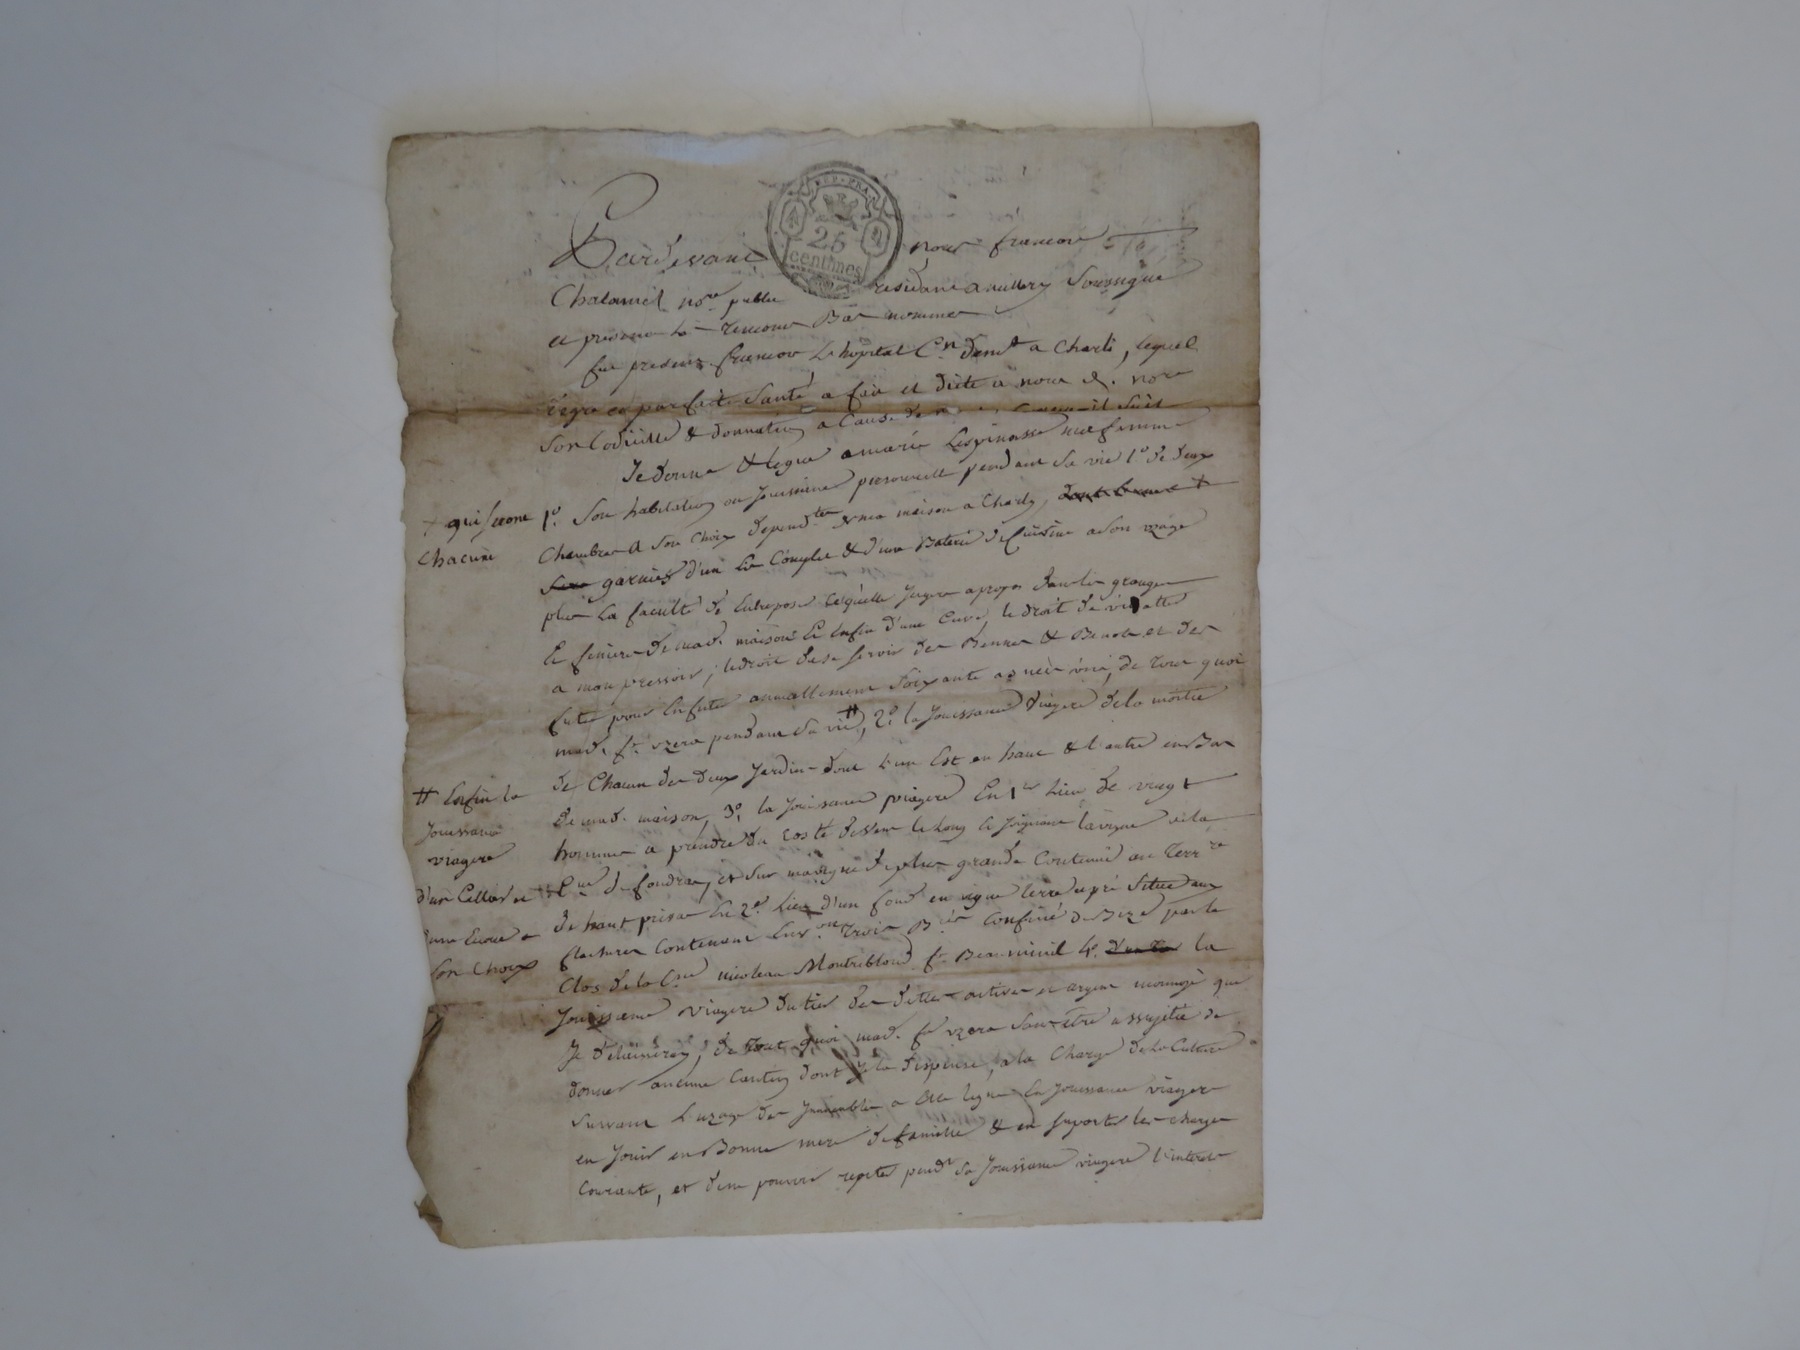 REP. FRA.
25
centimes
Pardevant nous francois
Chalamel no.re public residant a millery Soussigné
et présence des temoins Bas nommés
fut présent francois L'hôpital C.en dem.t a Charli, lequel
en parfaite Santé a fait et dicté a nous d. no.re
Son Codicille & donnation a Cause de suit
Je donne & legue a marie Lespinasse ma femme
1º. Son habitation ou Jouissance personnelle pendant Sa vie 1º de deux
Chambres a Son Choix depend.tes de ma maison a Charly, +
garnies d'un Lit Complet & d'une Baterie de Cuisine a Son uzage
plus La faculté d'Entreposer Ce qu'elle Jugera apropos dans les granges
Et feniere de mad. maison Et Enfin d'une Cuve, le droit de
a mon pressoir, le droit de se servir des Bennes & et des
futs pour Enfuter annuellement Soixante anées vin, de tout quoi
mad. f.e uzera pendant Sa vie #, 2º. la Jouissance Viagere de la moitié
de Chacun des deux Jardins dont L'un Est en haut & l'autre en Bas
de mad. maison, 3º. la Jouissance viagere En 1er Lieu de vingt
hommés a prendre du costé dessus le Long Et Joignant la vigne de la
C.ne de foudras, et Sur ma vigne de plus grande Contenue au Terr.re
de haut En 2e. Lieu d'un fond en vigne terre et pré Situé aux
Contenant Env.on trois B.ées Confiné de Bize par le
Clos de la C.ne nicoleau Montribloud f.e Beauvinil 4º. la
Jouissance viagere du tiers des dettes actives et argent monnoyé que
Je délaisserai, de tout quoi mad. f.e uzera Sans être assujetie de
donner aucune Caution dont Je la dispense, a la Charge de la Culture
Suivant L'uzage des Immeubles a Elle legués La Jouissance viagere
en Jouir en Bonne mere de famille & en suporter les charges
Courantes, et de ne pouvoir repeter pend.t Sa Jouissance viagere l'interet
+ qui seront
Chacune
# Enfin la
Jouissance
viagere
d'un Cellier et
d'une Ecurie a
Son Choix